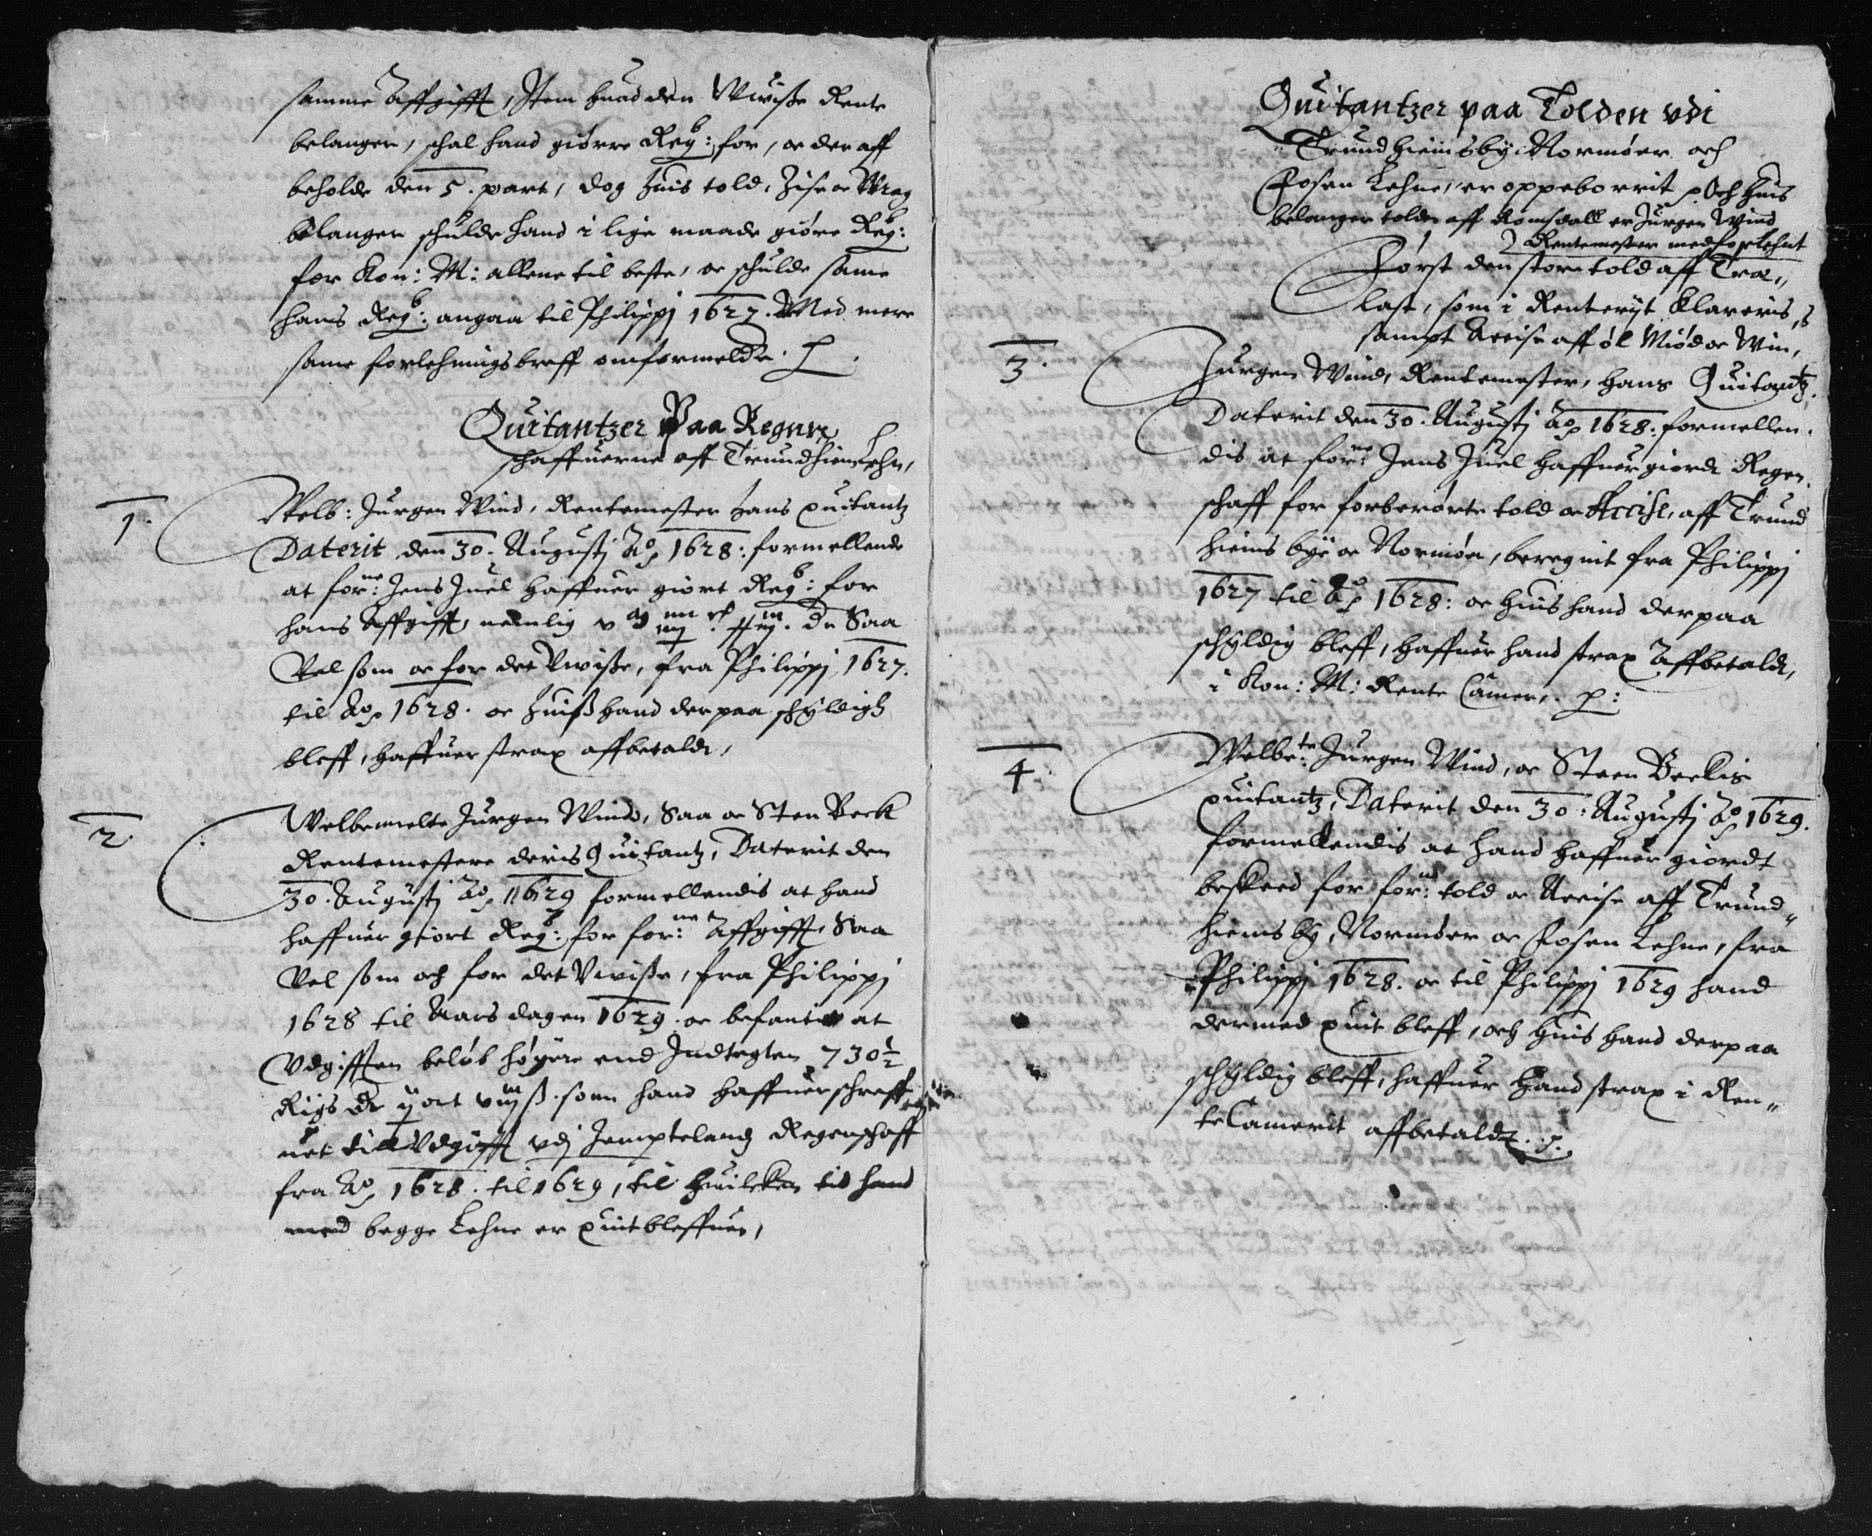 samme Affgifft, Item huad den Vwisse Rente
belanger, schal hand giørre Reg: for, oc der aff
beholde den 5. part, dog huis told, Zise oc Wrag
belanger schulde hand i lige maade giøre Reg:
for Kon: M: allene til beste, oc schulde same
hans Reg: angaa til Philippj 1627. Med mere
same forlehnings breff omformelder.
Quitantzer Paa Regen
schaffuerne aff Trundhiem Lehn,
1. Welb: Jurgen Wind, Rentemester hans quitantz
Daterit den 30. Augustj Ao 1628: formellende
at forne: Jens Juel haffuer giort Reg: for
hans Affgifft, nemlig Dr Saa
Vel som oc for det Vwisse, fra Philippj 1627.
til Ao 1628. oc huiss hand derpaa schyldigh
bleff, haffuer strax affbetalt,
2. Welbemelte Jurgen Wind, Saa oc Sten Beck
Rentemestere deris Quitantz, Daterit den
30. Augustj Ao 1629 formellendis at hand
haffuer giort Reg: for forne: Affgifft Saa
Vel som och for det Vwisse, fra Philippj
1628 til Aars dagen 1629. oc befantis at
Vdgifften beløb høyere end Indtegten 730½
Rigs Dr ij ort viij ß. som hand haffuer schreff
uet till Vdgifft vdj Jempteland Regenschaff
fra Ao 1628. til 1629, til huilcken tid hand
med begge Lehne er quit bleffuen,
Quitantzer paa Tolden vdi
Trundhiems by: Normøer och
Fosen Lehne, er oppeborrit, Och huis
belanger tolden aff Romsdall er Jurgen Wind
Rentemester med forlehnt
Først den store told aff Træ,,
last, som i Renterijt klareris,
sampt Accise aff øl Miød oc Win,
3. Jurgen Wind, Rentemester, hans Quitantz
Daterit den 30. Augustj Ao 1628: formellen
dis at forne: Jens Juel haffuer giordt Regen
schaff for forberørte told oc Accise, aff Trund
hiems bye oc Normøer, beregnit fra Philippj
1627 til Ao 1628: oc huis hand derpaa
schyldig bleff, haffuer hand strax Affbetaldt,
i Kon: M: Rente Camer,
4. Welbte: Jurgen Wind, oc Steen Beckis
quitantz, Daterit den 30: Augustj Ao 1629.
formellendis at hand haffuer giordt
beskeed for forne: told oc Accise aff Trund„
hiems by, Normøer oc Fosen Lehne, fra
Philippj 1628. oc til Philippj 1629 hand
dermed quit bleff, och huis hand derpaa
schyldig bleff, haffuer hand strax i Ren„
te Camerit affbetaldt.